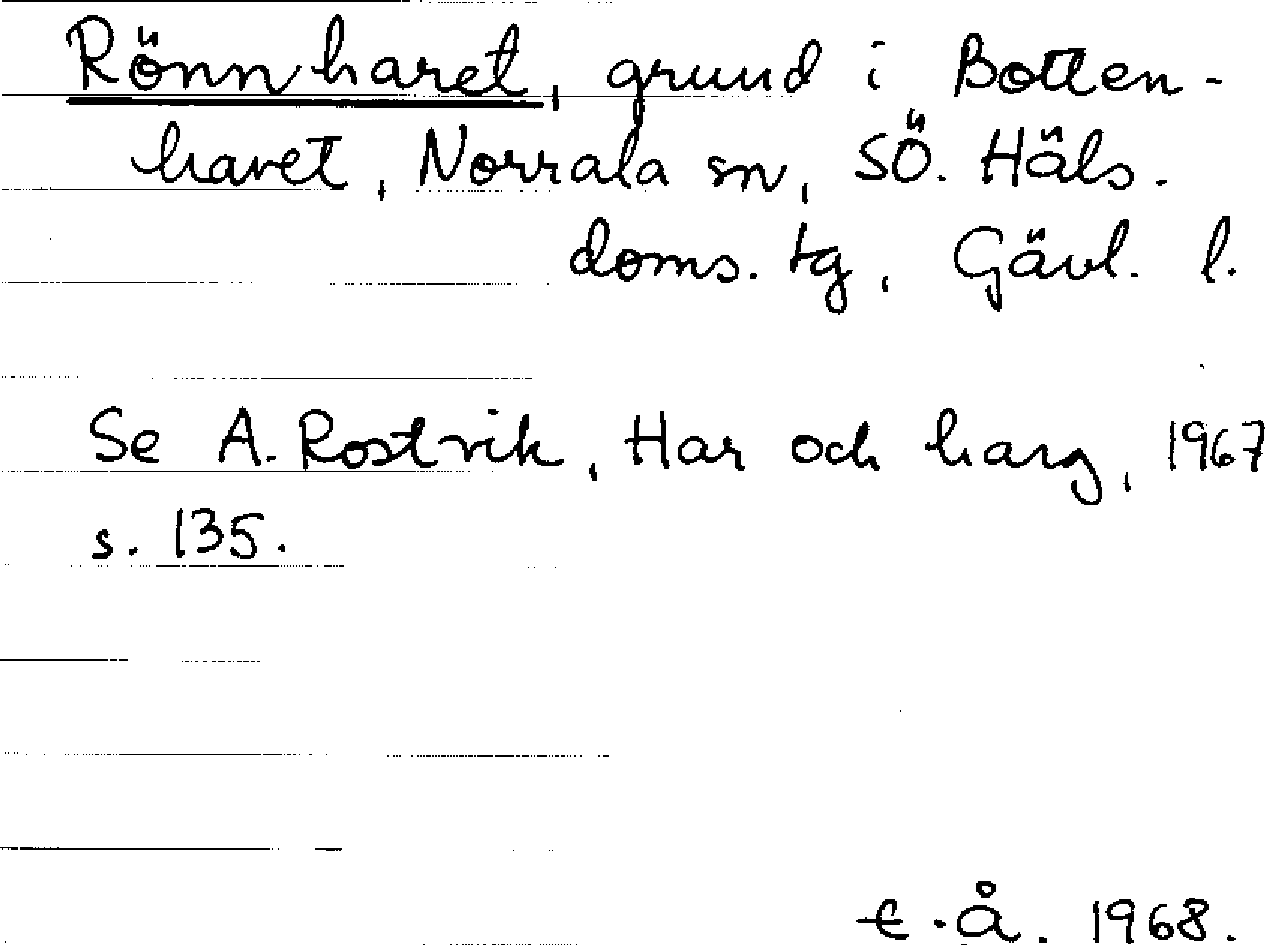 Rönnharet, grund i Botten-
havet, Norrala sn, SÖ. Häls.
doms. tg, Gävl. l.
Se A. Rostvik, Har och harg, 1967
s. 135.
E.Å. 1968.